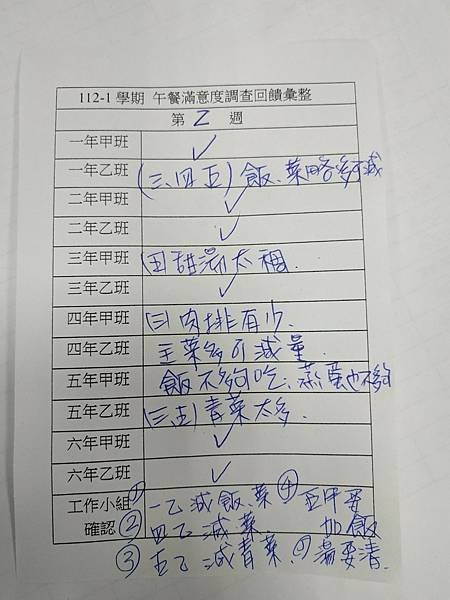 112-1 學期 午餐滿意度調查回饋彙整
第 2 週
一年甲班 ✓
一年乙班 (三、四、五) 飯、菜略多可減
二年甲班 ✓
二年乙班 ✓
三年甲班 (四) 甜湯太稠.
三年乙班 ✓
四年甲班 (三) 肉排有少.
四年乙班 主菜多可減量.
五年甲班 飯不夠吃、蒸蛋也不夠
五年乙班 (三、五) 青菜太多.
六年甲班 ✓
六年乙班 ✓
工作小組 ① 一乙減飯、菜 ④ 五甲要
確認 ② 四乙減菜. 加飯
③ 五乙減青菜. 湯要清.